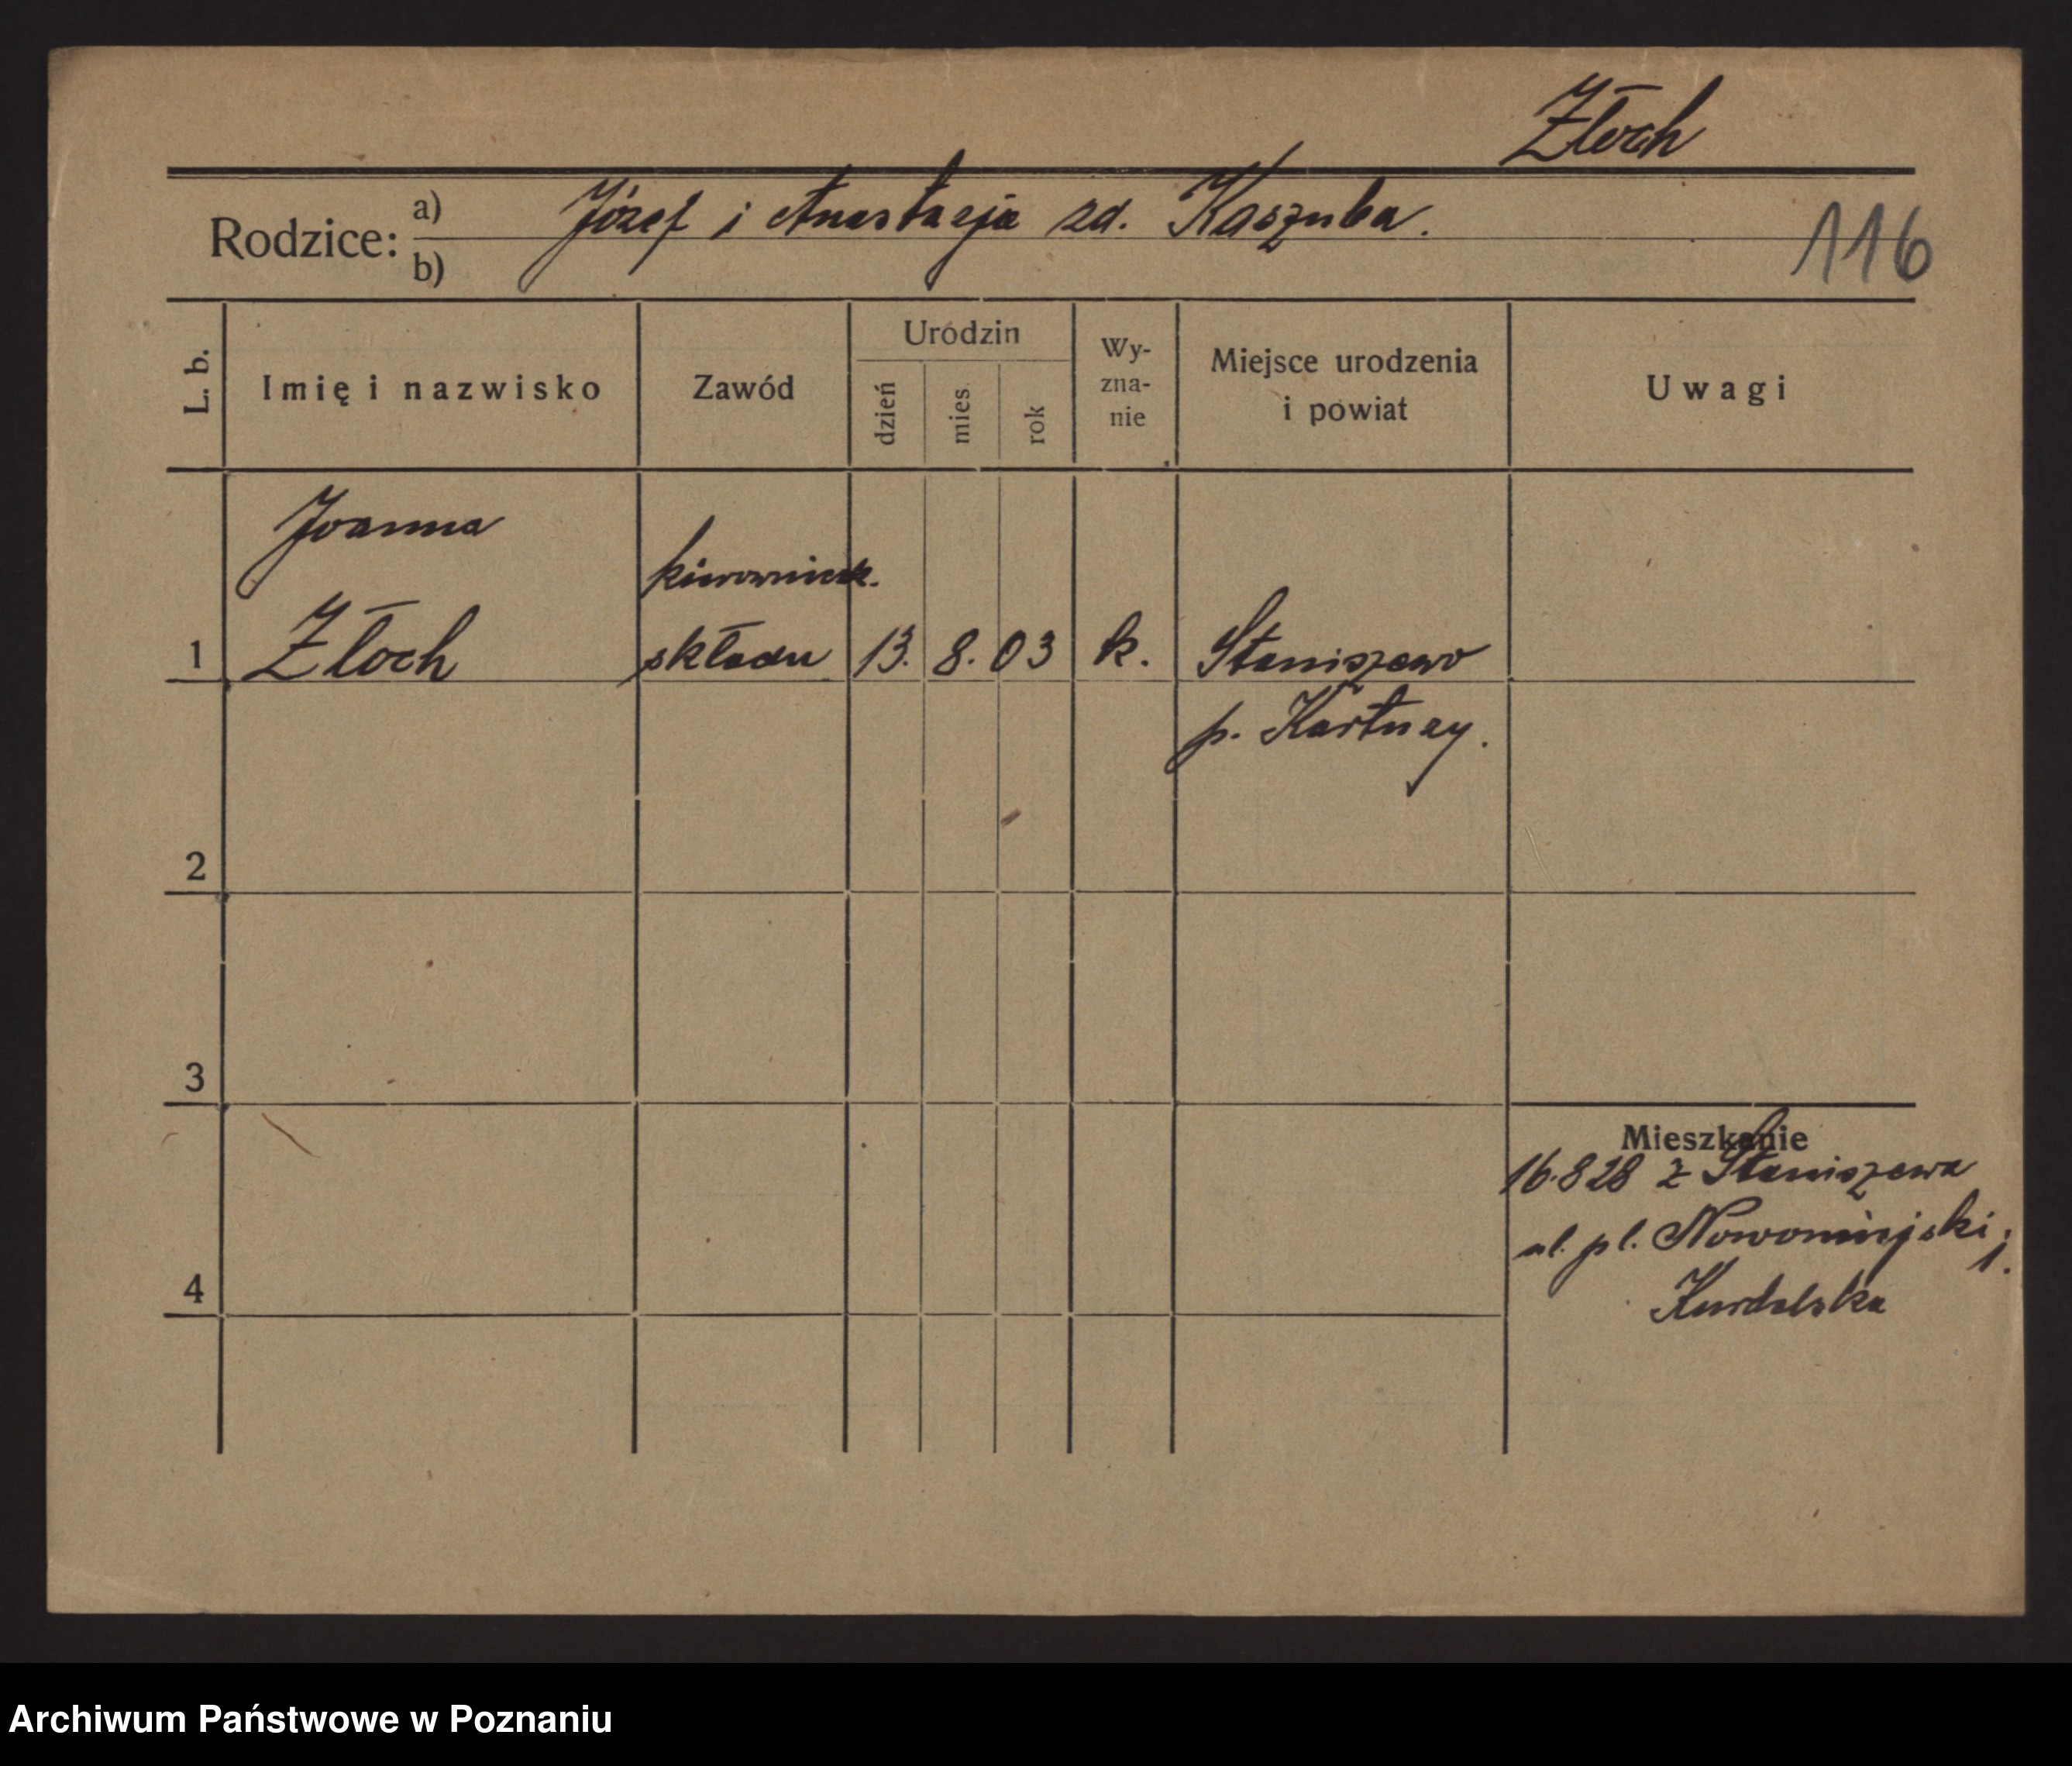 Złoch
Rodzice: a) Józef i Anastazja zd. Kaszuba.
b)
116
L. b. Imię i nazwisko Zawód Urodzin dzień mies. rok Wy-zna-nie Miejsce urodzenia i powiat Uwagi
Joanna
kierowniczk.
1 Złoch składu 13. 8. 03 k. Staniszewo
p. Kartuzy.
2
3
Mieszkanie
16.8 28 z Staniszewa
ul. pl. Nowomiejski 1.
4 Kurdelska
Archiwum Państwowe w Poznaniu